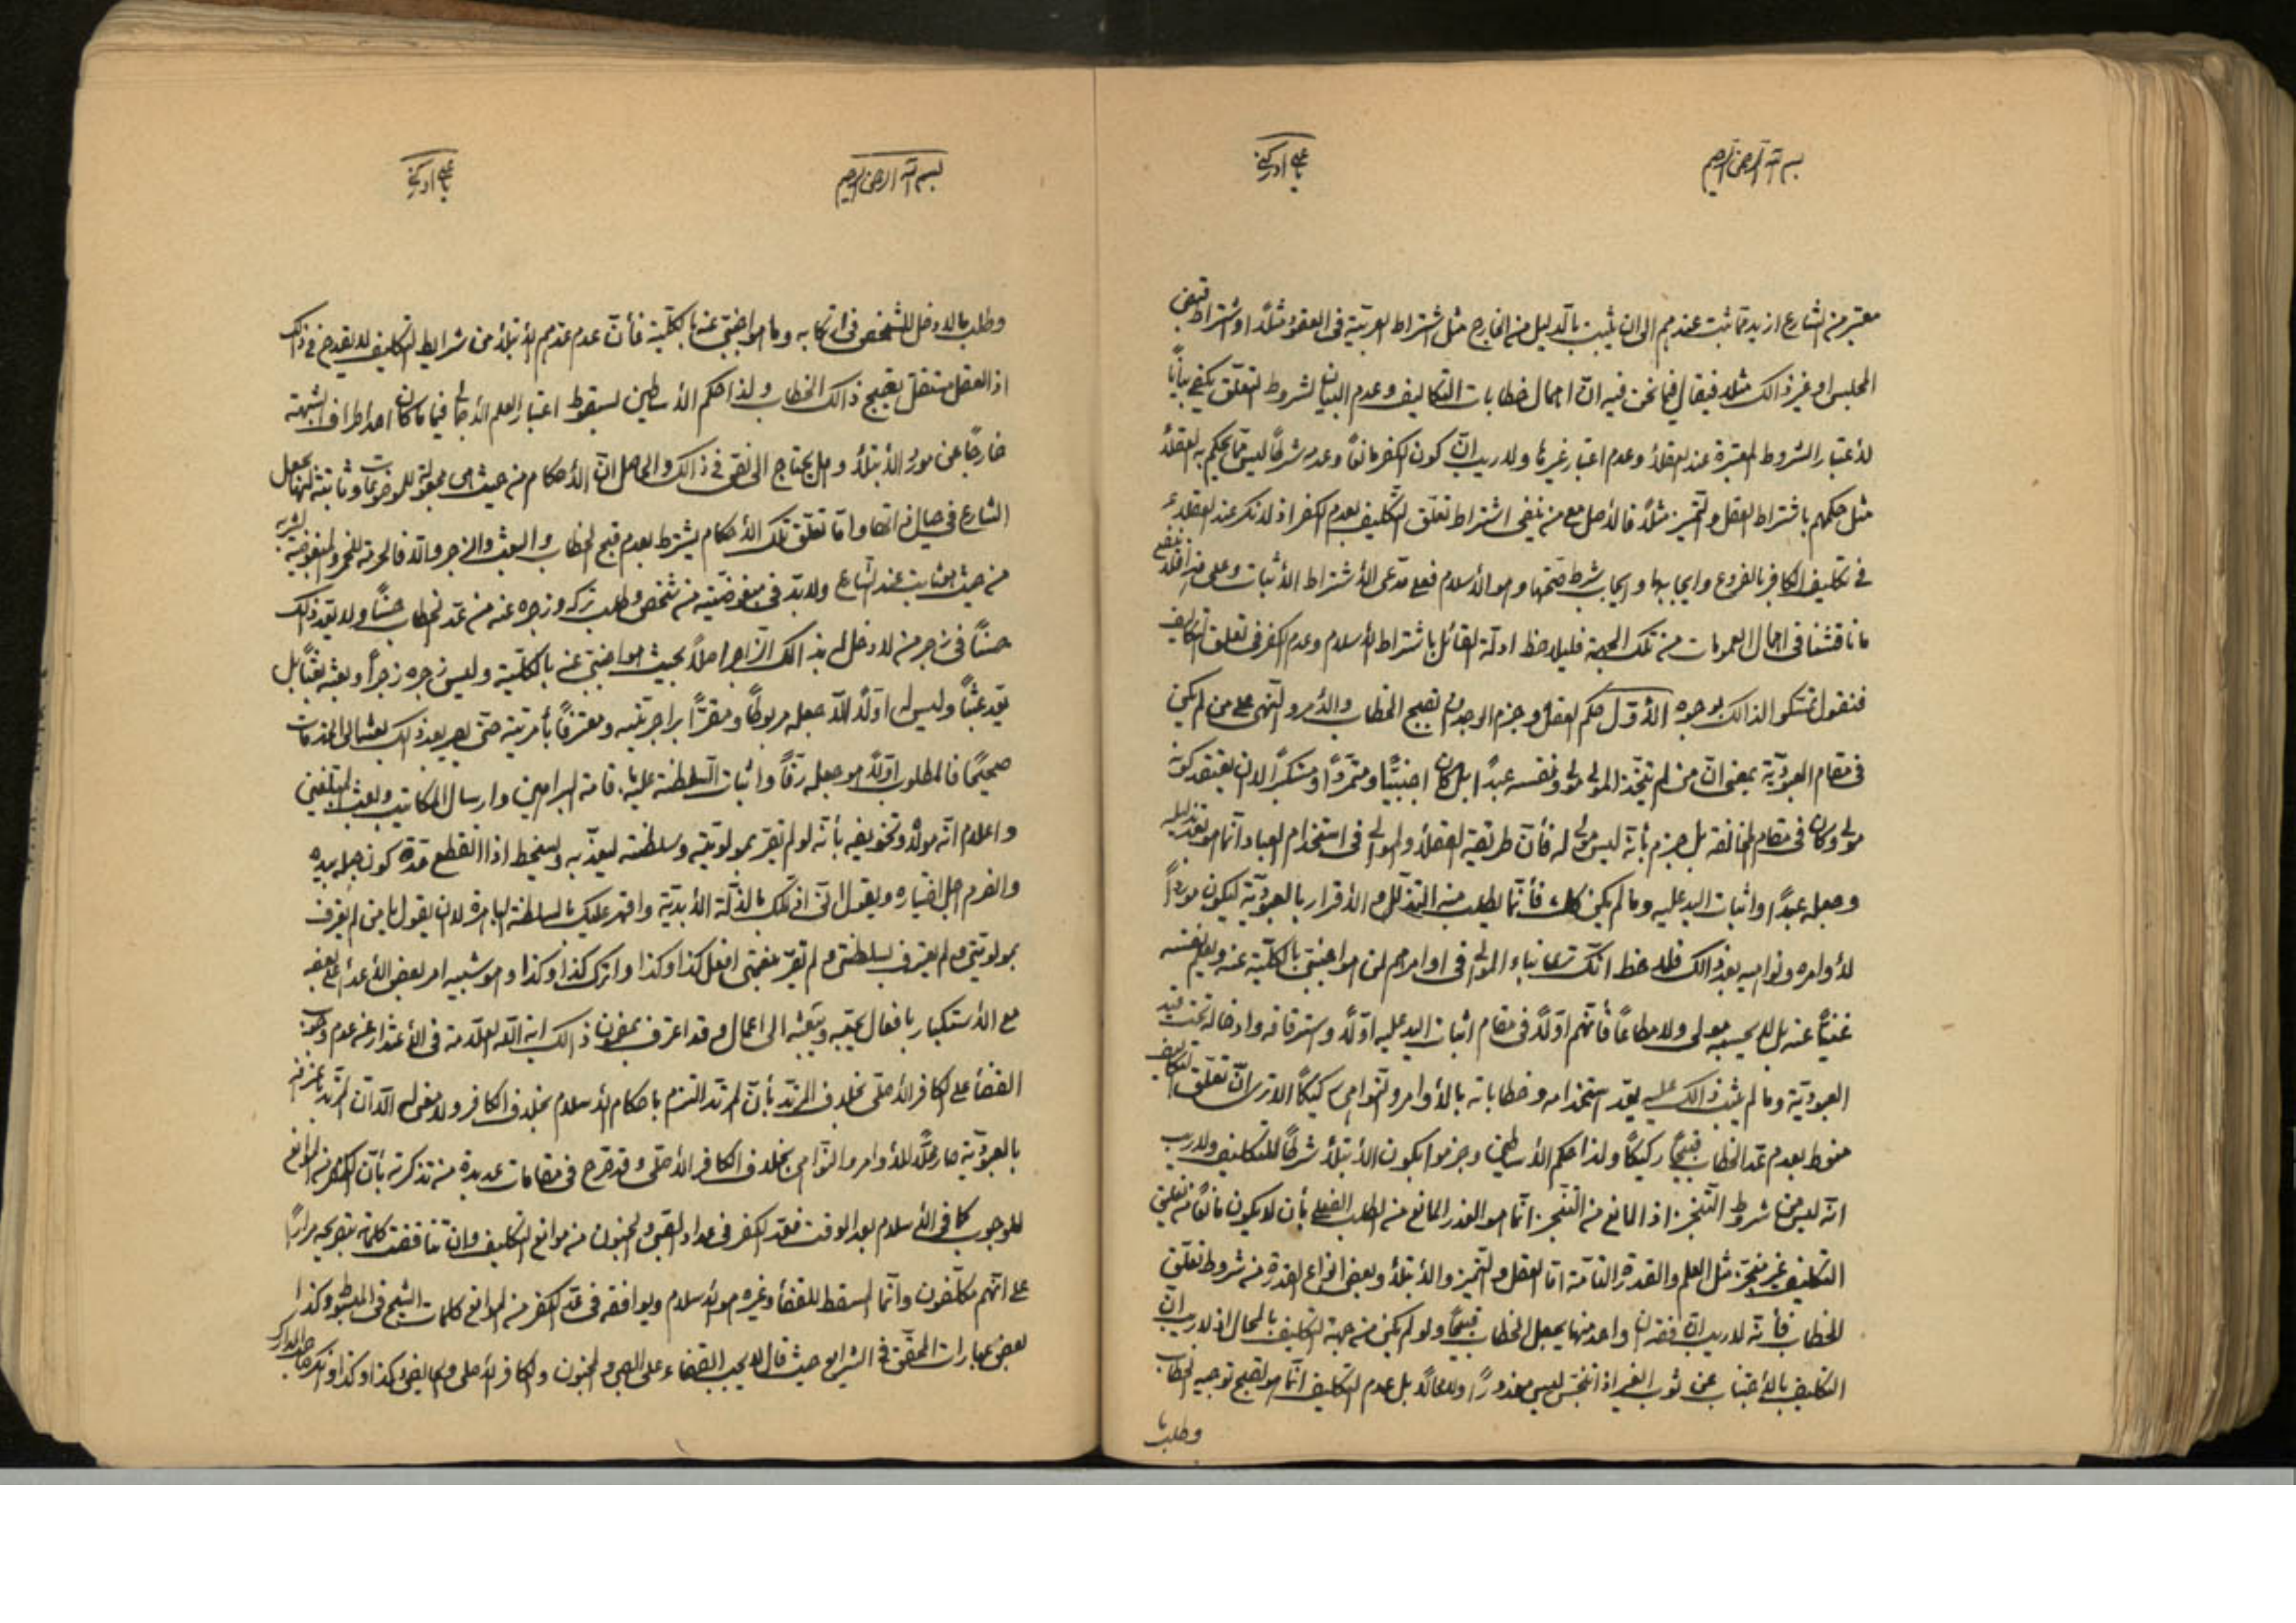 بسم الله الرحمن الرحيم
يا علي ادركني
معتبر من الشارع ازيد مما ثبت عندهم الى ان يثبت بالدليل من الخارج مثل اشتراط العربية في العقود مثلاً او اشتراط قبض
المجلس او غير ذالك مثلا فيقال فيما نحن فيه ان اجمال خطابات التكاليف وعدم البيان لشروط التعلق يكفي بياناً
لأعتبار الشروط المعتبرة عند العقلاء وعدم اعتبار غيرها ولا ريب ان كون الكفر مانعاً وعدمه شرطاً ليس مما يحكم به العقلاء
مثل حكمهم باشتراط العقل والتميز مثلاً فالأصل مع من ينفي اشتراط تعلق التكليف بعدم الكفر اذ لا نكر عند العقلاء
في تكليف الكافر بالفروع وايجابها وايجاب شرط صحتها وهو الأسلام فعلى مدعي الأشتراط الأثبات وعلى
ما ناقشنا في اجمال العمومات من تلك الجهة فليلاحظ ادلة القائل باشتراط الأسلام وعدم الكفر في تعلق التكاليف
فنقول تمسكوا لذالك بوجوه الأول حكم العقل وجزم الوجدان بقبح الخطاب والأمر والنهي على من لم يكن
في مقام العبودية بمعنى ان من لم يتخذ المولى مولى ونفسه عبداً بل كان اجنبياً ومتمرداً ومنكراً لان يعتقد كونه
مولى وكان في مقام المخالفة بل جزم بأنه ليس مولى له فأن طريقة العقلاء والموالي في استخدام العباد انما هو بعد تذليله
وجعله عبداً واثبات اليد عليه وما لم يكن كك فأنما يطلب منه التذلل والأقرار بالعبودية ليكون مورداً
لأوامره ونواهيه بعد ذالك فلاحظ انك ترى ابناء الموالي في اوامرهم لمن هو اجنبي بالكلية عنه ويعلم نفسه
غنياً عنه بل لا يحسبه مولى ولا مطاعاً فأنهم اولاً في مقام اثبات اليد عليه اولاً واسترقاقه وادخاله تحت قيد
العبودية وما لم يثبت ذالك عليه يعد استخدامه وخطاباته بالأوامر والنواهي ركيكاً الا ترى ان تعلق التكاليف
منوط بعدم عد الخطاب قبيحاً ركيكاً ولذا حكم الأساطين وجزموا بكون الأبتلاء شرطاً للتكليف ولا ريب
انه ليس من شروط التنجز اذ المانع من التنجز انما هو العذر المانع من الطلب الفعلي بأن لا يكون مانعاً من تعلق
التكليف غير منجز مثل العلم والقدرة التامة اما العقل والتميز والأبتلاء وبعض انواع القدرة من شروط تعلق
الخطاب فأنه لا ريب ان فقدان واحد منها يجعل الخطاب قبيحاً ولو لم يكن من جهة التكليف بالمحال اذ لا ريب ان
التكليف بالأجتناب عن ثوب الغير اذا تنجس ليس معذوراً ولا محالاً بل عدم التكليف انما هو لقبح توجيه الخطاب
وطلب ما
بسم الله الرحمن الرحيم
يا علي ادركني
وطلب ما لا دخل للشخص في ارتكابه وما هو اجنبي عنه بالكلية فأن عدم عدهم الأبتلاء من شرايط التكليف لا يقدح في ذالك
اذ العقل مستقل بقبح ذالك الخطاب ولذا حكم الأساطين بسقوط اعتبار العلم الأجمالي فيما كان احد اطراف الشبهة
خارجاً عن مورد الأبتلاء وهل يحتاج الى نص في ذالك والحاصل ان الأحكام من حيث هي مجعولة للموضوعات وثابتة لها بجعل
الشارع في حيال ذاتها واما تعلق تلك الأحكام يشترط بعدم قبح الخطاب والبعث والزجر والا فالحرمة للخمر والمبغوضية لشربه
من حيث هو ثابت عند الشارع ولا بد في مبغوضيته من شخص وطلب تركه وزجره عنه من عد الخطاب حسناً ولا يعد ذالك
حسناً في زجر من لا دخل له بذالك الزاجر اصلاً بحيث هو اجنبي عنه بالكلية وليس زجره زجراً وبعثه بعثاً بل
يعد عبثاً وليس له اولاً الا جعله مربوطاً ومقراً بزاجريته ومعترفاً بأمريته حتى يصير بعد ذالك بعثه الى الخدمات
صحيحاً فالمطلوب اولاً هو جعله رقاً واثبات السلطنة عليه باقامة البراهين وارسال المكاتيب وبعث المبلغين
واعلام انه مولاه وتخويفه بأنه لو لم تقر بمولويته وسلطنته ليعذبه ويسخط اذا انقطع مدة كون حبله بيده
وانصرم اجل اختياره ويقول اني اذلك بالذلة الأبدية واقهر عليك بالسلطنة القاهرة لا ان يقول يا من لم يعترف
بمولويتي ولم يعترف بسلطنتي ولم تقر بنعمتي افعل كذا وكذا واترك كذا وكذا وهو شبيه امر بعض الأعداء على بعضه
مع الأستكبار بافعال يحبه ويبعثه الى اعماله وقد اعترف بمضمون ذالك اية الله العلامة في الأعتذار عن عدم وجوب
القضاء على الكافر الأصلي بخلاف المرتد بأن المرتد التزم باحكام الأسلام بخلاف الكافر ولا معنى له الا ان المرتد باعترافه
بالعبودية صار محلاً للأوامر والنواهي بخلاف الكافر الأصلي وقد صرح في مقامات عديدة من تذكرته بأن الكفر من الموانع
للوجوب كما في الأسلام بعد الوقت فقد الكفر في عداد الصبى والجنون من موانع التكليف وان تناقضت كلماته بتصريحه مراراً
على انهم مكلفون وانما المسقط للقضاء وغيره هو الأسلام ويوافقه في عد الكفر من الموانع كلمات الشيخ في المبسوط وكذا
بعض عبارات المحقق في الشرايع حيث قال لا يجب القضاء على الصبي والمجنون والكافر الأصلي والحايض كذا وكذا وانكر صاحب المدارك